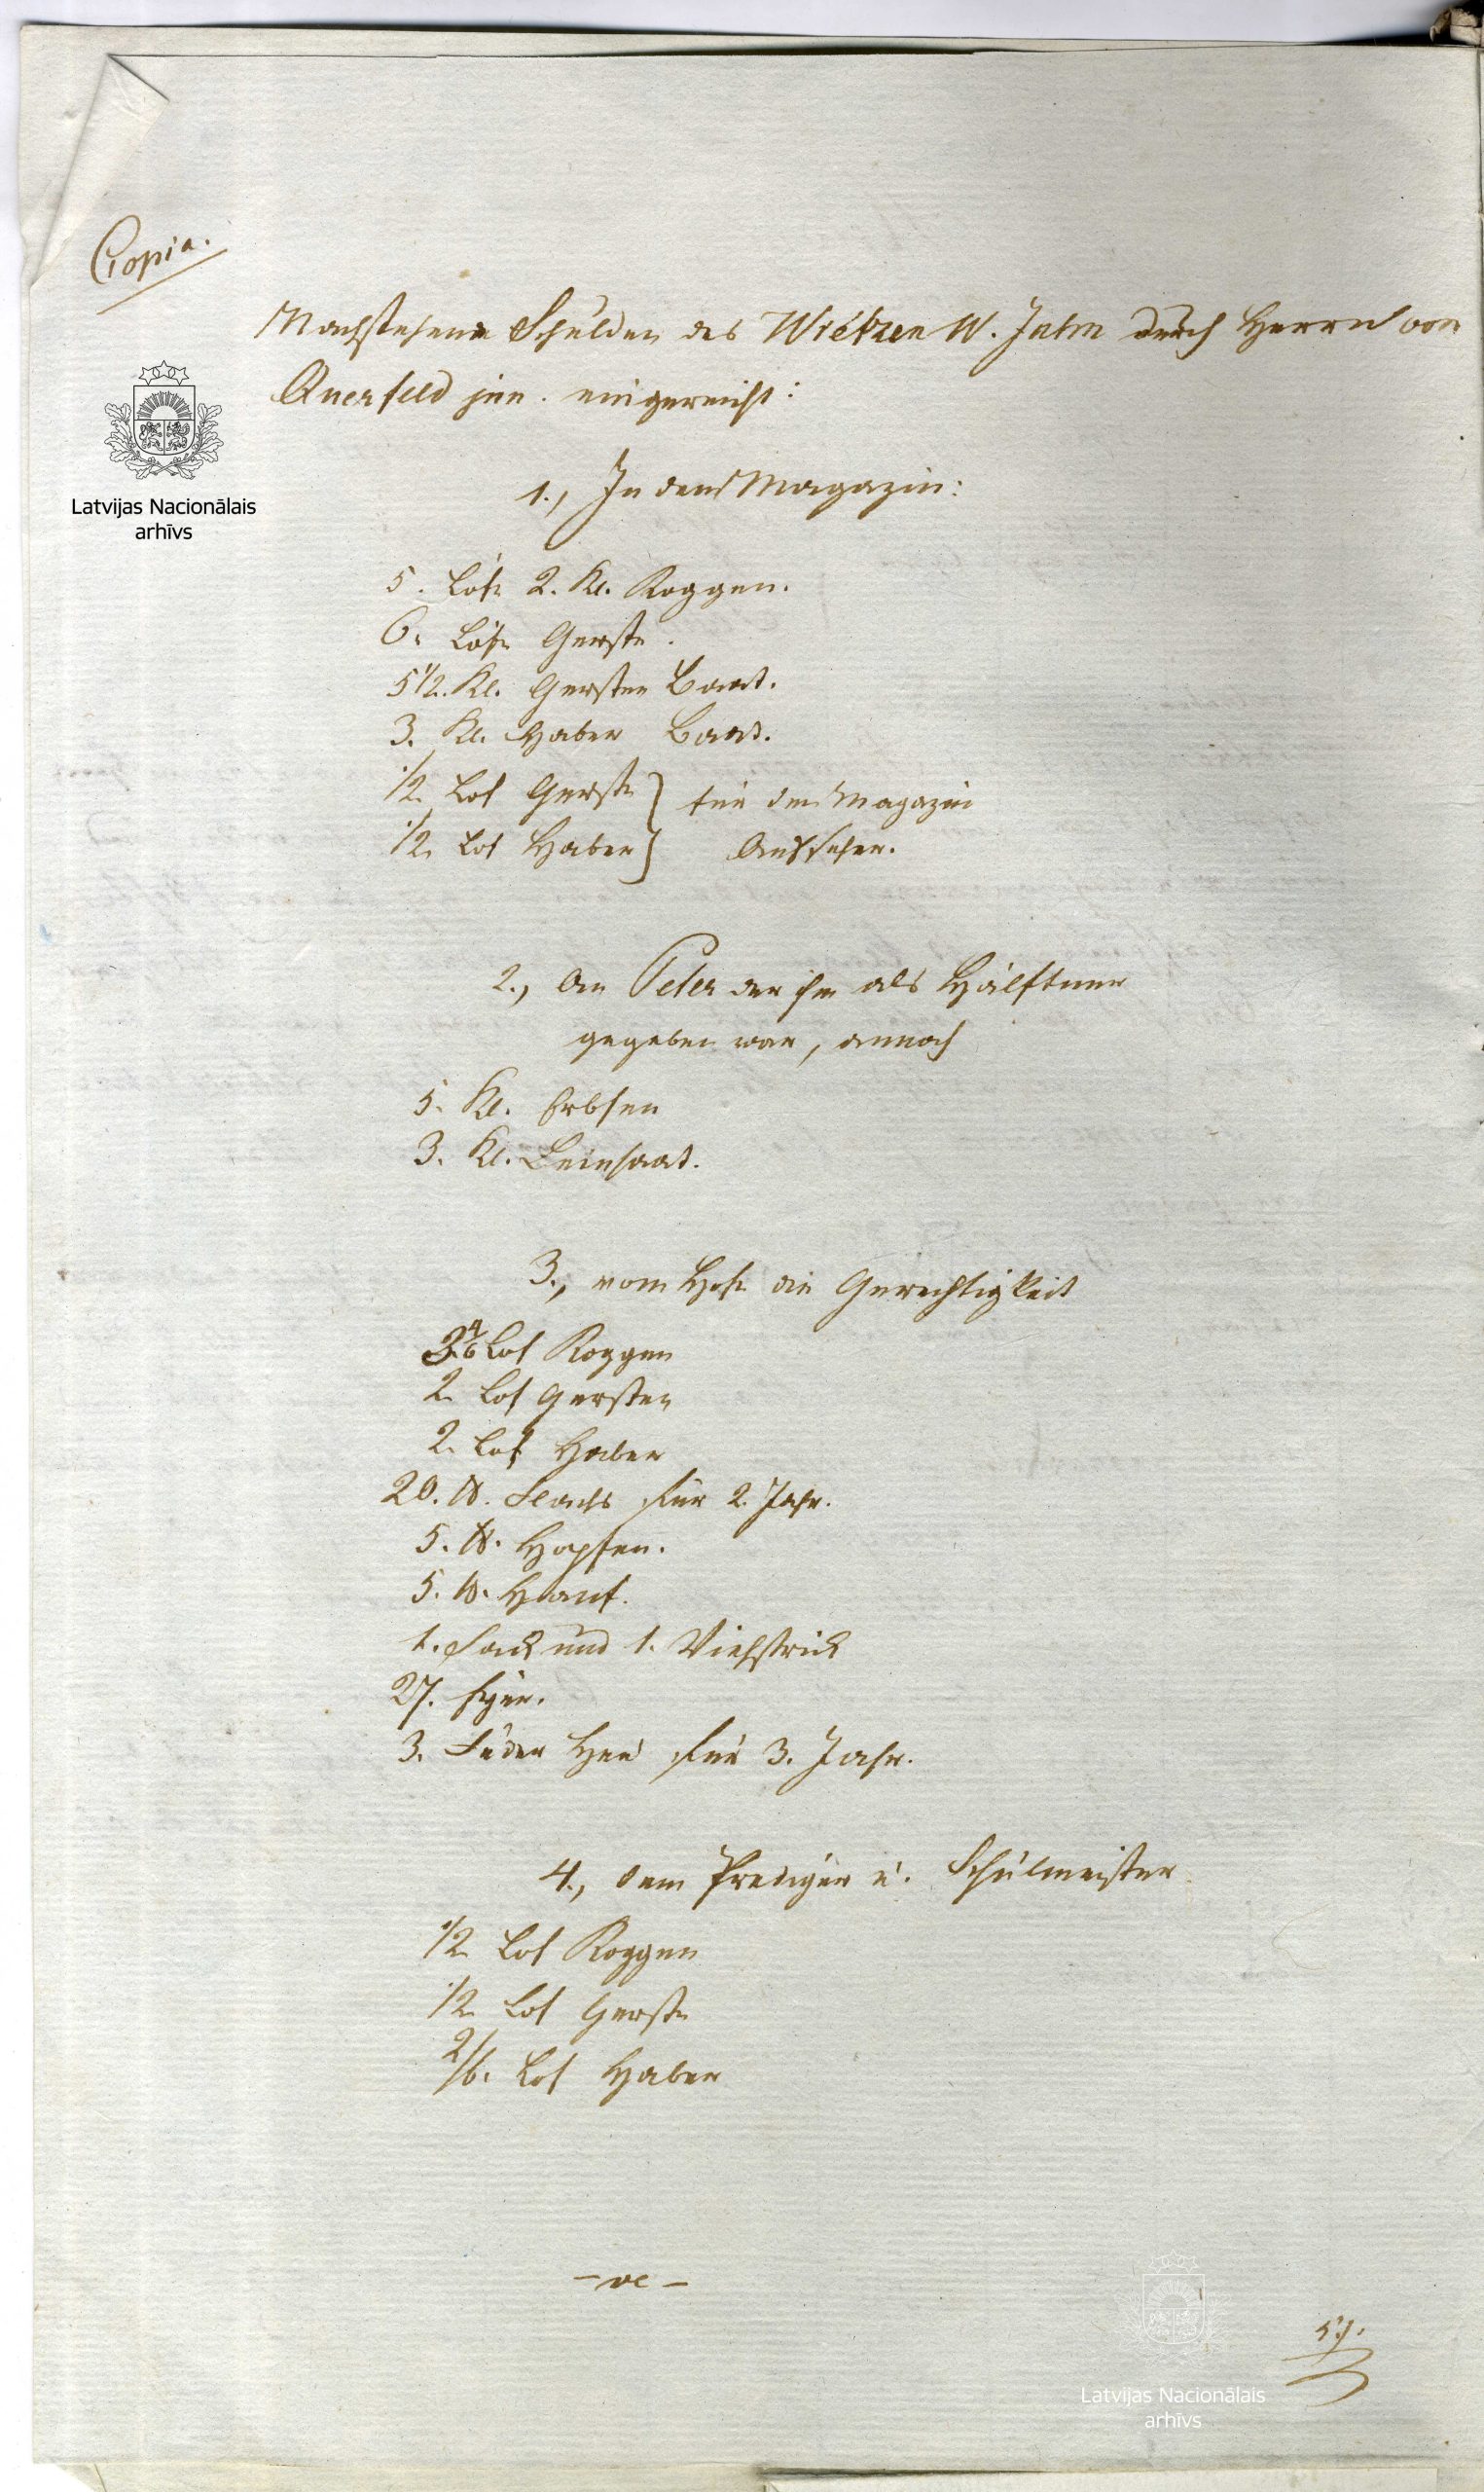 Copia.
Nachstehende Schulden des Wietzen W. Jahn durch Herrn von
Querfeld jun. eingereicht:
Latvijas Nacionālais
arhīvs
1., In dem Magazin:
5. Löfe 2. Kl. Roggen.
6. Löfe Gerste.
5 1/2. Kl. Gersten Baat.
3. Kl. Haber Baat.
1/2 Lof Gerste } für den Magazin
1/2 Lof Haber } Aufseher.
2., An Peter der ihm als Hälftner
gegeben war, annoch
5. Kl. Erbsen
3. Kl. Leinsaat.
3., vom Hofe die Gerechtigkeit
3 4/6 Lof Roggen
2 Lof Gersten
2. Lof Haber
20. ℔. Flachs für 2. Jahr.
5. ℔. Hopfen.
5. ℔. Hanf.
1. Sack und 1. Viehstrick
27. Eyer.
3. Fuder Heu für 3. Jahr.
4., dem Prediger u. Schulmeister
1/2 Lof Roggen
1/2 Lof Gerste
2/6. Lof Haber
57.
Latvijas Nacionālais
arhīvs